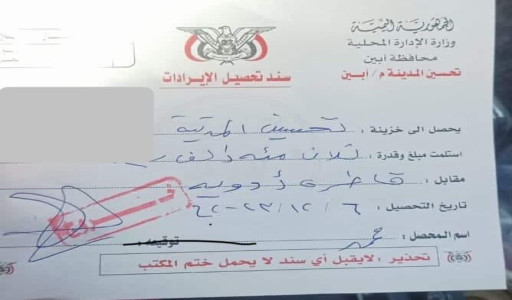 الجمهورية اليمنية
وزارة الإدارة المحلية
محافظة أبين
تحسين المدينة م/أبين
سند تحصيل الإيرادات
يحصل الى خزينة : تحسين المدينة
استلمت مبلغ وقدرة : ثلاث مئه الف
مقابل : قاطره أدويه
تاريخ التحصيل : ٦ / ١٢ / ٢٠٢٣
اسم المحصل :
توقيعه :
تحذير : لايقبل أي سند لا يحمل ختم المكتب